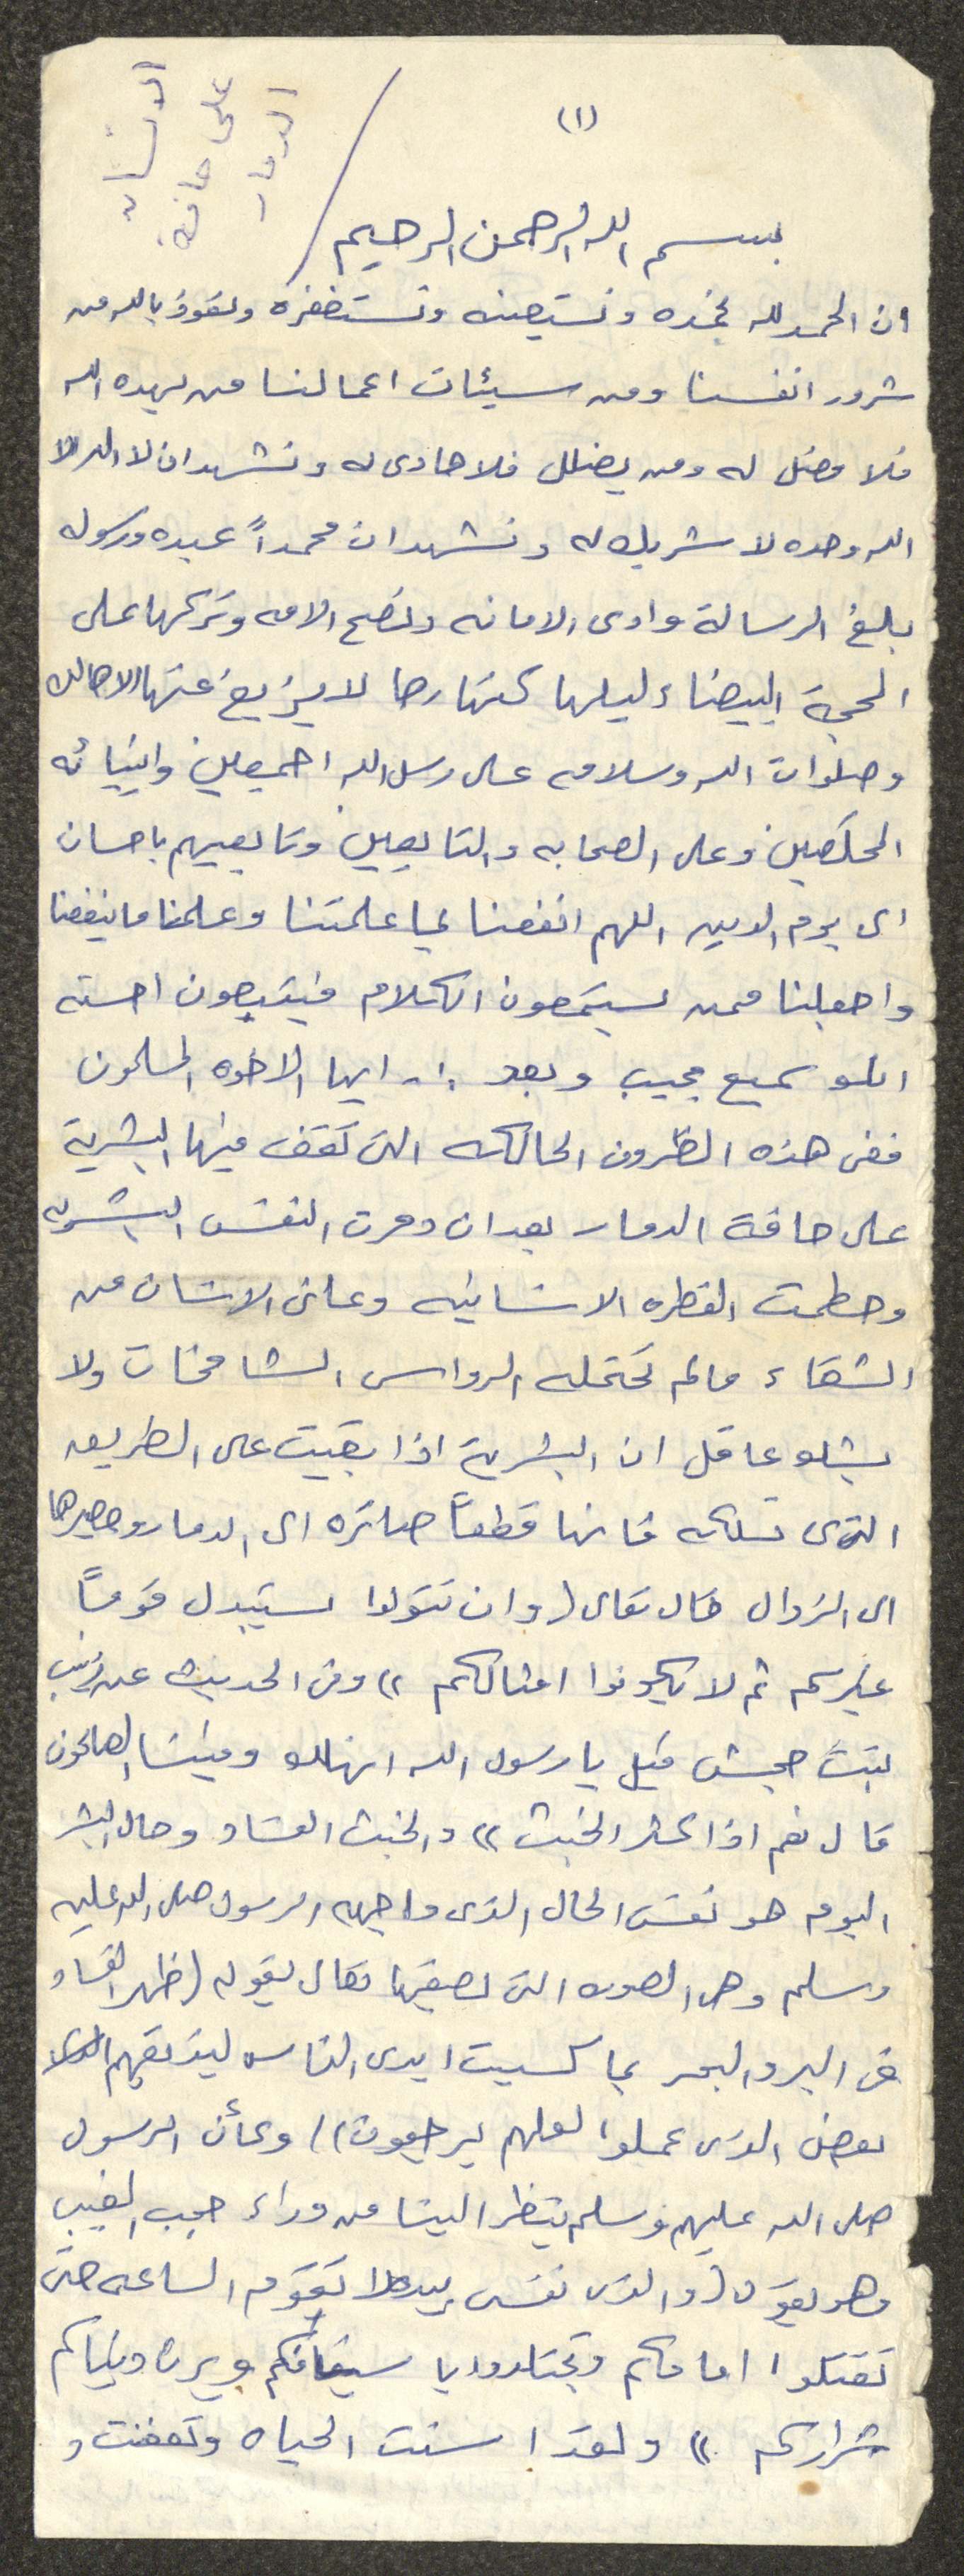 (١)
الانسان
على حافة
الدمار
بسم الله الرحمن الرحيم
ان الحمد لله نحمده ونستعينه ونستغفره ونعوذ بالله من
شرور انفسنا ومن سيئات اعمالنا من يهده الله
فلا مضل له ومن يضلل فلا هادى له ونشهد ان لا اله الا
الله وحده لا شريك له ونشهد ان محمداً عبده ورسوله
بلغ الرسالة وادى الامانه ونصح الامه وتركها على
المحجة البيضاء ليلها كنهارها لا يزيغ عنها الا هالك
وصلوات الله وسلامه على رسل الله اجمعين وانبيائه
المخلصين وعلى الصحابه والتابعين وتابعيهم باحسان
الى يوم الدين اللهم انفعنا بما علمتنا وعلمنا ما ينفعنا
واجعلنا ممن يستمعون الكلام فيتبعون احسنه
انك سميع مجيب وبعد :- ايها الاخوه المسلمون
ففى هذه الظروف الحالكه التى تقف فيها البشرية
على حافة الدمار بعد ان دمرت النفس البشريه
وحطمت الفطره الانسانيه وعانى الانسان من
الشقاء مالم تحتمله الرواسى الشامخات ولا
يشك عاقل ان البشرية اذا بقيت على الطريق
الذى تسلكه فانها قطعاً صائره الى الدمار ومصيرها
الى الزوال قال تعالى (وان تتولوا يستبدل قوماً
غيركم ثم لا يكونوا امثالكم)) وفى الحديث عن زينب
بنت جحش قيل يا رسول الله انهلك وفينا الصالحون
قال نعم اذا كثر الخبث)) والخبث الفساد وحال البشر
اليوم هو نفس الحال الذى واجهه الرسول صلى الله عليه
وسلم وهى الصوره التى يصفها تعالى بقوله (ظهر الفساد
فى البر والبحر بما كسبت ايدى الناس ليذيقهم
بعض الذى عملوا لعلهم يرجعون)) وكأن الرسول
صلى الله عليه وسلم ينظر الينا من وراء حجب الغيب
وهو يقول (والذى نفسى بيده لا تقوم الساعه حتى
تقتلوا امامكم وتجتلدوا باسيافكم ويرث دنياكم
شراركم)) ولقد اسنت الحياه وتعفنت و